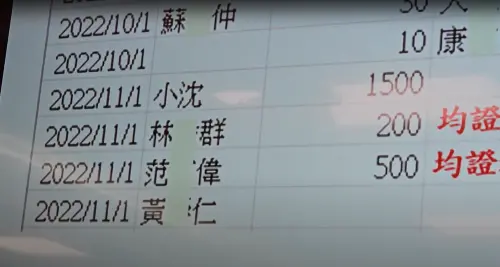 2022/10/1 蘇 仲
2022/10/1 10 康
2022/11/1 小沈 1500
2022/11/1 林 群 200 均證
2022/11/1 范 偉 500 均證
2022/11/1 黃 仁